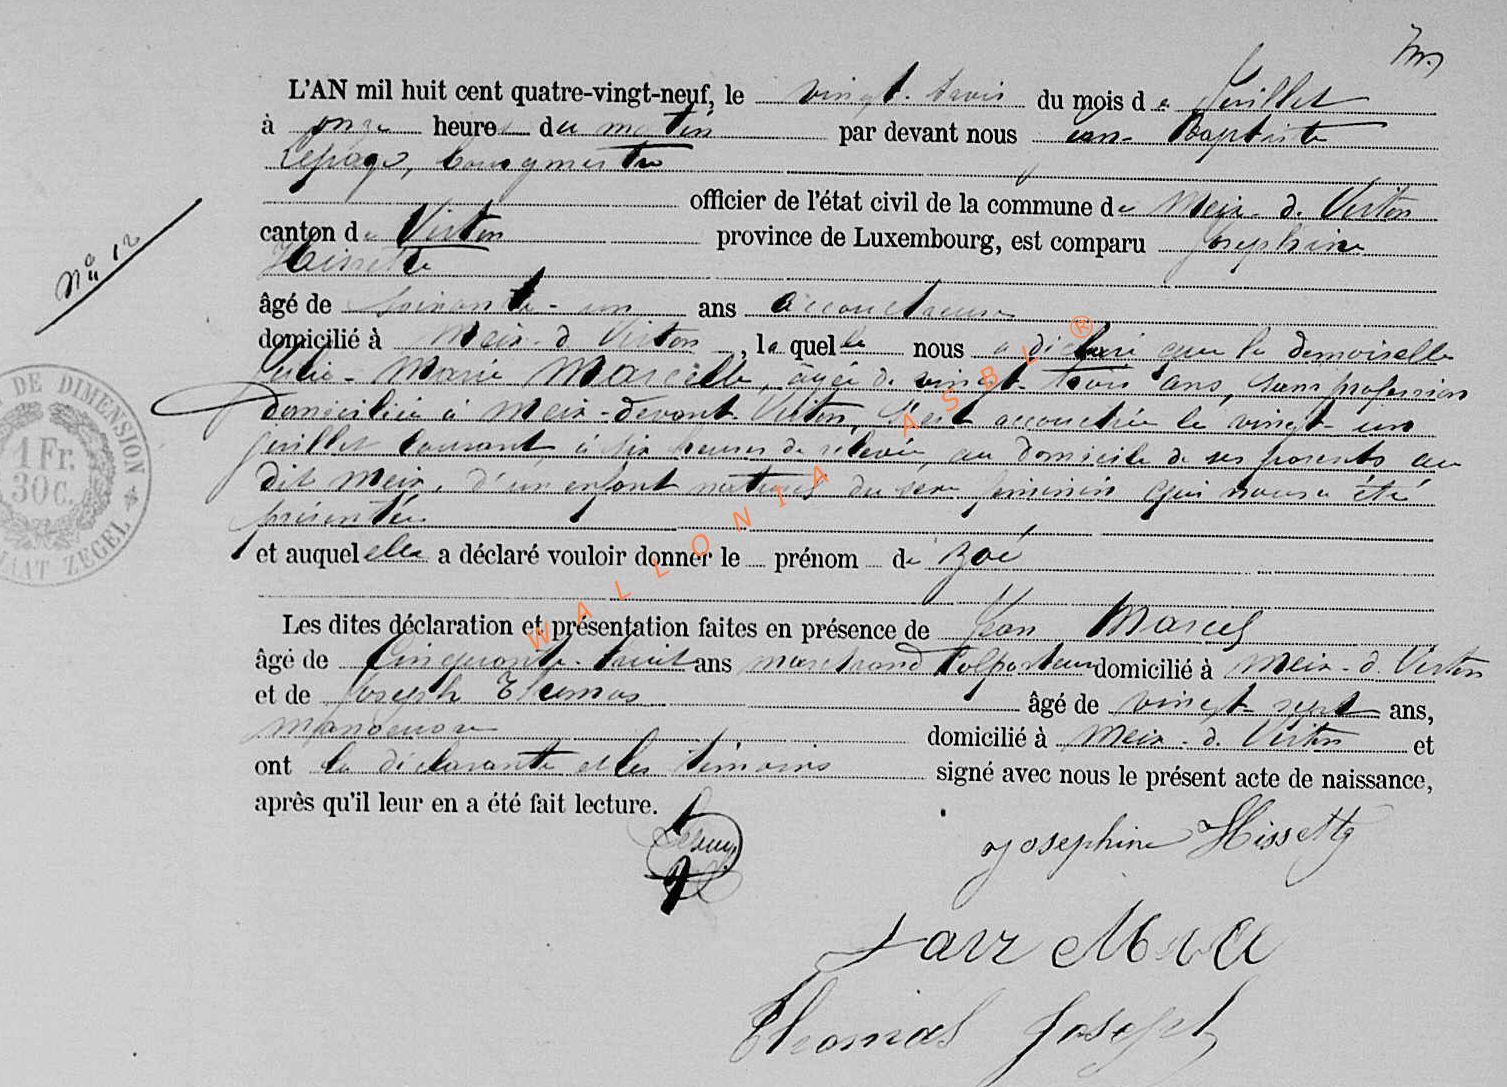 L'AN mil huit cent quatre-vingt-neuf, le vingt-trois du mois de Juillet
à onze heures du matin par devant nous Jean-Baptiste
Lepage, bourgmestre
officier de l'état civil de la commune de Meix-d. Virton
canton de Virton province de Luxembourg, est comparu Josephine
Hissette
N° 12
âgé de soixante-un ans accoucheuse
domicilié à Meix-d Virton, laquelle nous a déclaré que la demoiselle
Julie-Marie Marcelle, âgée de vingt-trois ans, sans profession
domiciliée à Meix-devant-Virton, s'est accouchée le vingt-un
juillet courant, à six heures de relevée, au domicile de ses parents au
dit Meix, d'un enfant naturel du sexe féminin qui nous a été
présentée
et auquel elle a déclaré vouloir donner le prénom de Zoé
Les dites déclaration et présentation faites en présence de Jean Marcel
âgé de cinquante-huit ans marchand colporteur domicilié à Meix-d. Virton
et de Joseph Thomas âgé de vingt-sept ans,
manoeuvre domicilié à Meix-d. Virton et
ont la déclarante et les témoins signé avec nous le présent acte de naissance,
après qu'il leur en a été fait lecture.
Josephine Hissette
Thomas Joseph
DE DIMENSION
1 Fr.
30 C.
ZEGEL
WALLONIA ASBL ®